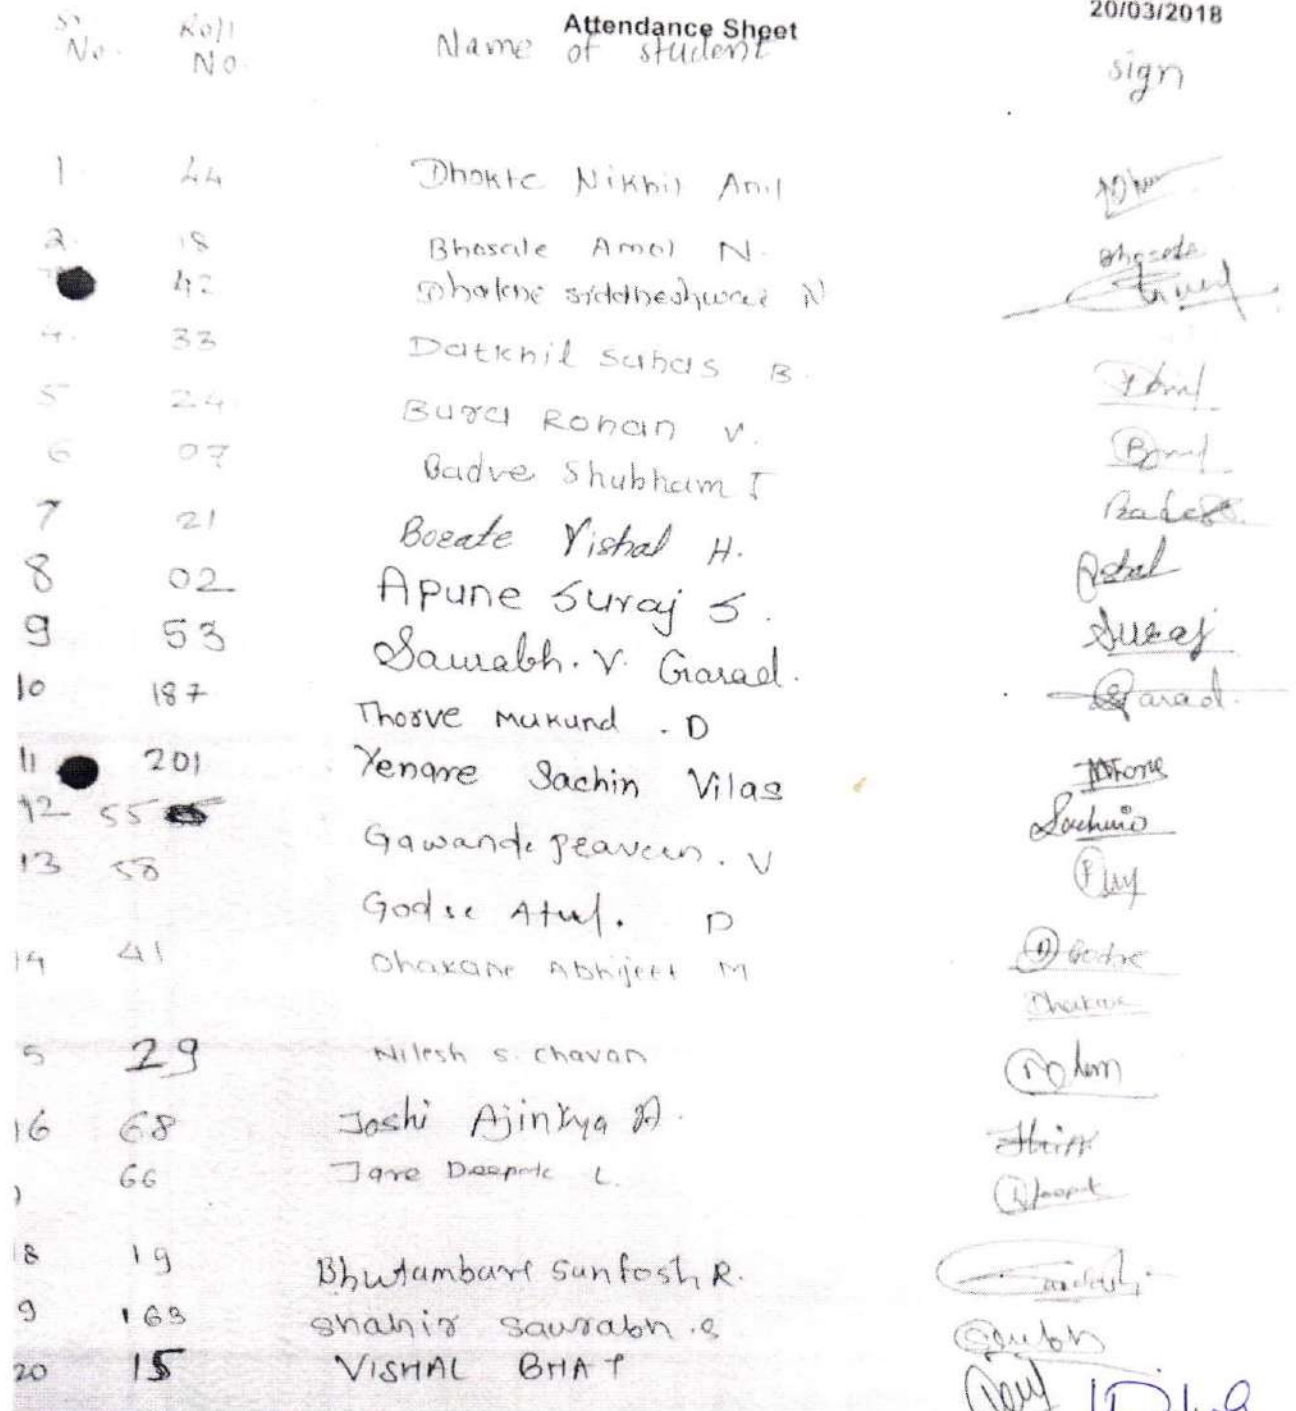 Attendance Sheet 20/03/2018
Sr No. Roll No. Name of student sign
1 44 Dhokte Nikhil Anil
2. 18 Bhosale Amol N. Bhosale
42 Dhakne siddheshwar N
4. 33 Datkhil Suhas B.
5 24 Bura Rohan V.
6 07 Badve Shubham J
7 21 Borate Vishal H.
8 02 Apune Suraj S.
9 53 Saurabh. V. Garad. Suraj
10 187 Thorve Mukund . D Garad.
11 201 Yenare Sachin Vilas
12 55 Gawande Praveen. V Sachin
13 58
Godse Atul. D
14 41 Dhakane Abhijeet M Godse
Dhakane
5 29 Nilesh S. Chavan
16 68 Joshi Ajinkya A.
66 Jare Deepak L. Deepak
18 19 Bhutambare Suntosh R.
9 163 Shahir Saurabh .S
20 15 VISHAL BHAT